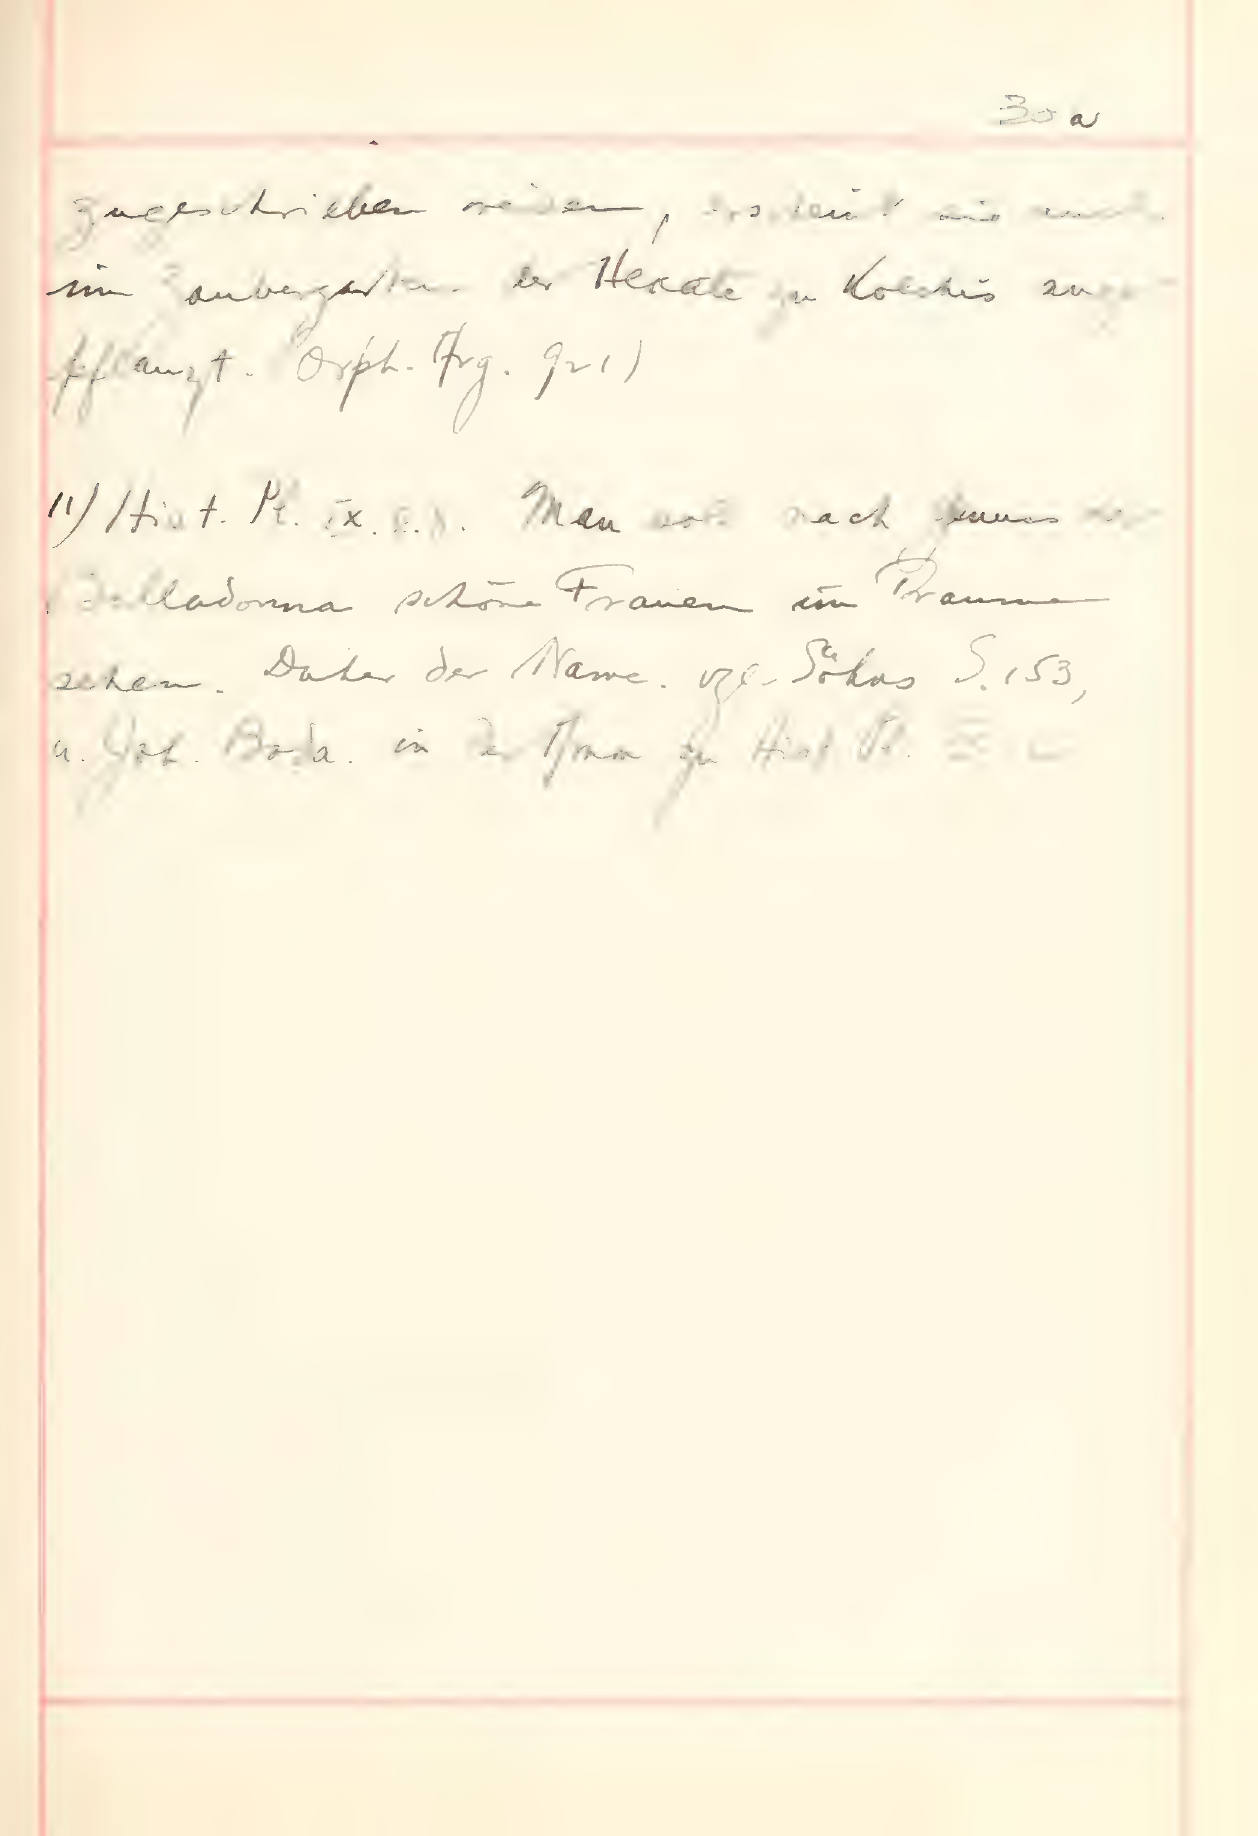 30 a
zugeschrieben werden, erscheint sie auch
im Zaubergarten der Hekate zu Kolchis ange-
pflanzt. Orph. Arg. 921)
11) Hist. Pl. IX. Man soll nach Genuss der
Belladonna schöne Frauen im Traume
sehen. Daher der Name. vgl. Söhns S. 153,
u. Joh. Boda. in der Anm zu Hist Pl. IX